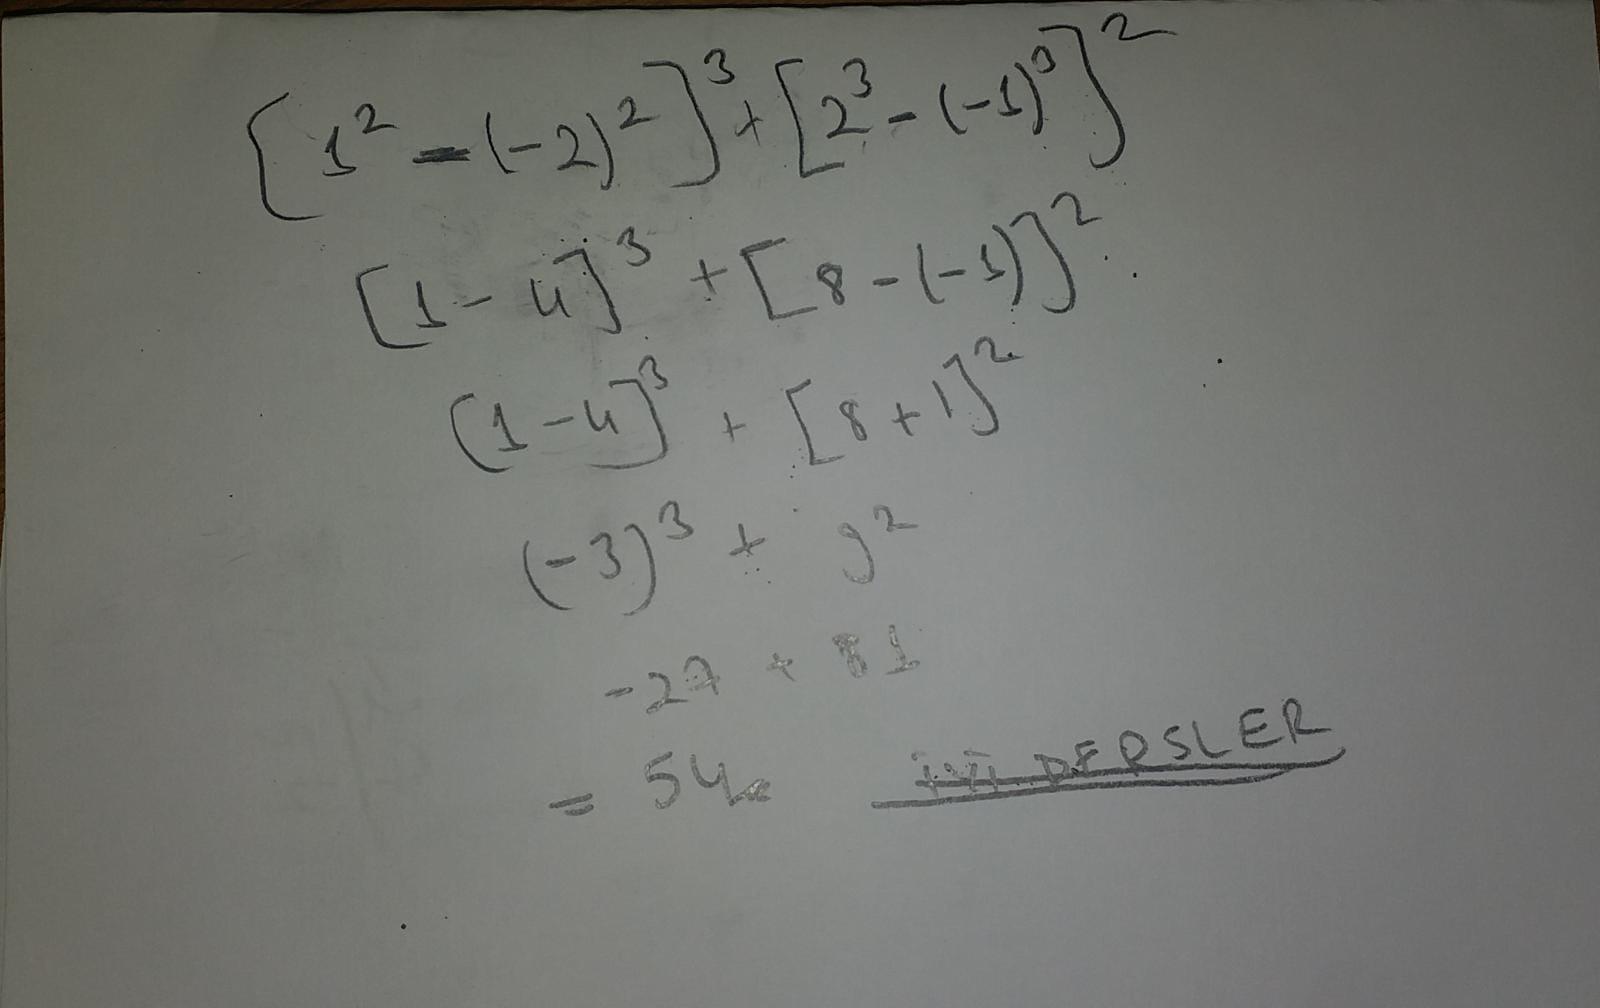 [1² - (-2)²]³ + [2³ - (-1)³]²
[1 - 4]³ + [8 - (-1)]²
[1 - 4]³ + [8 + 1]²
(-3)³ + 9²
-27 + 81
= 54
İYİ DERSLER